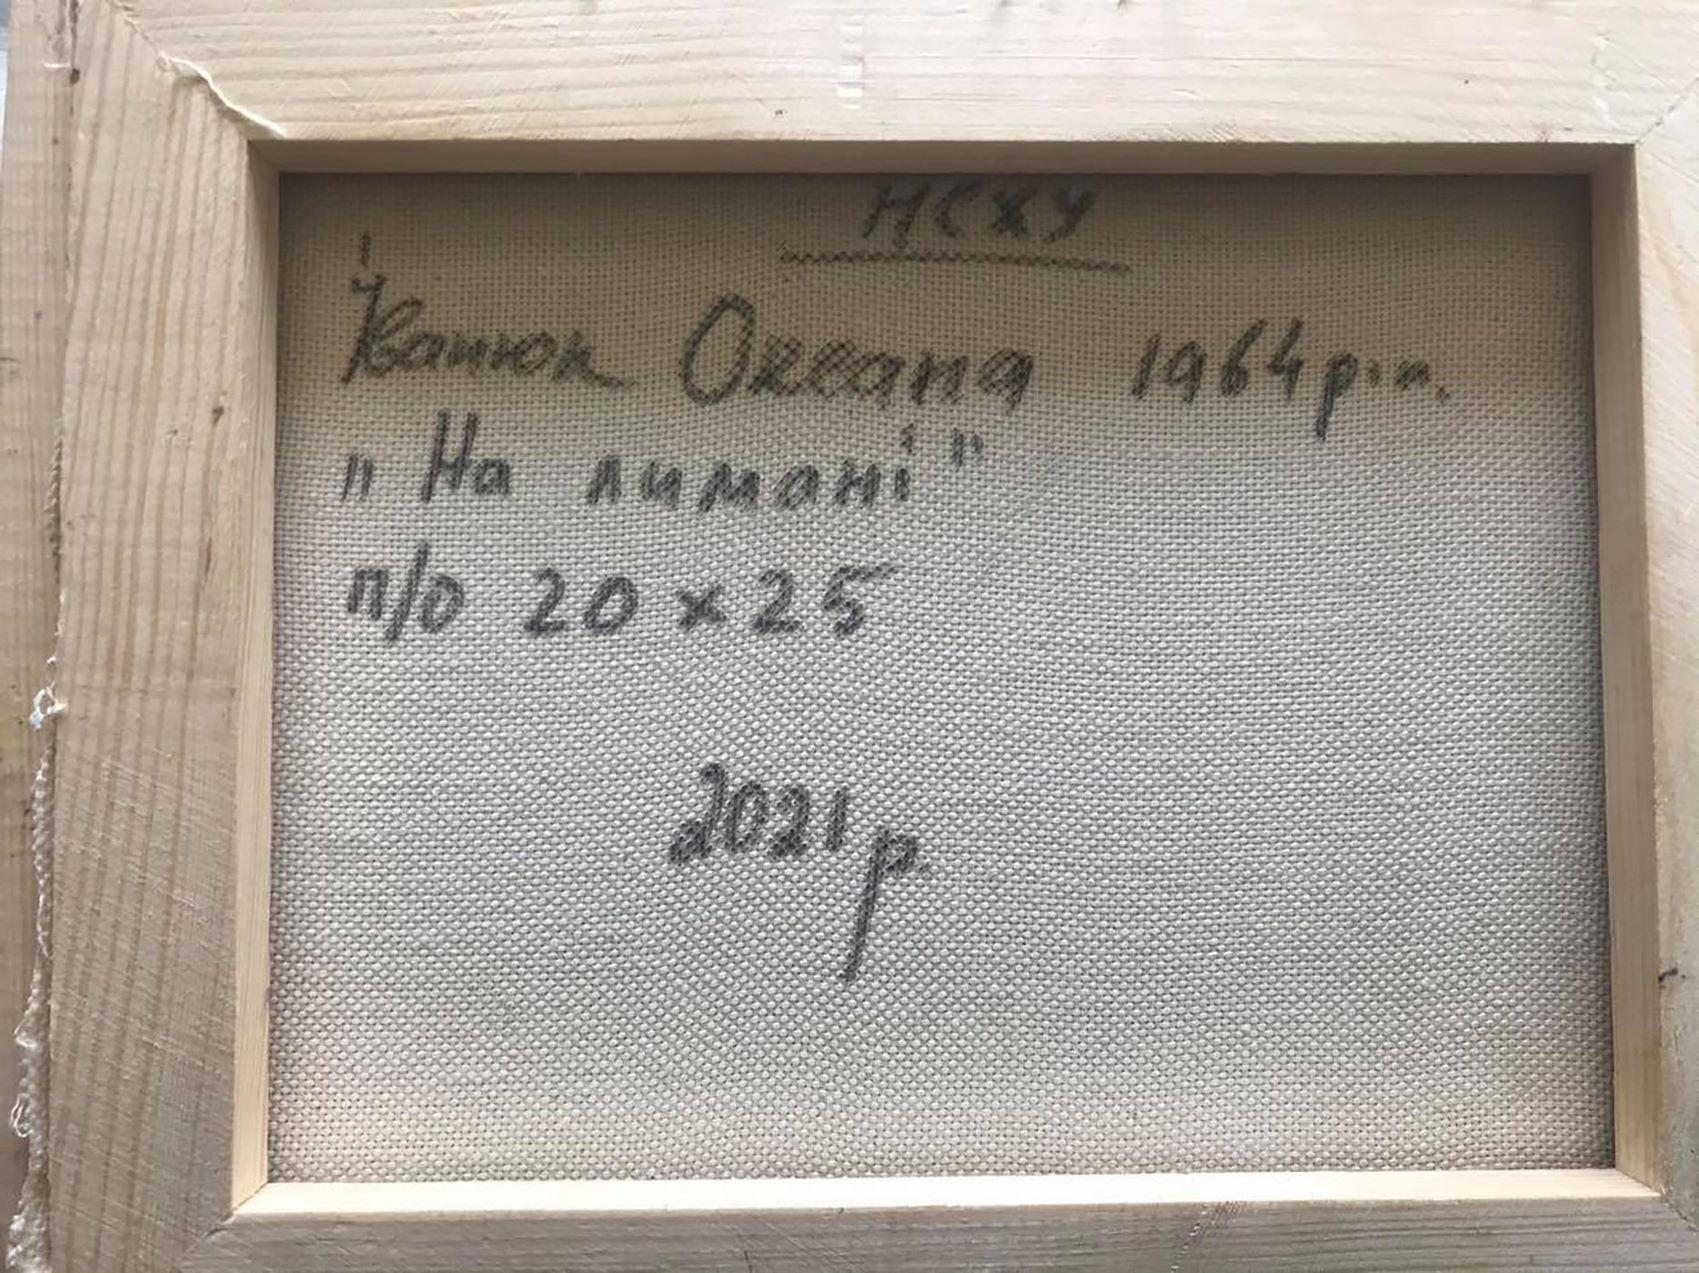 НСХУ
Іванюк Оксана 1964 р.н.
„На лимані"
п/о 20 x 25
2021 р.